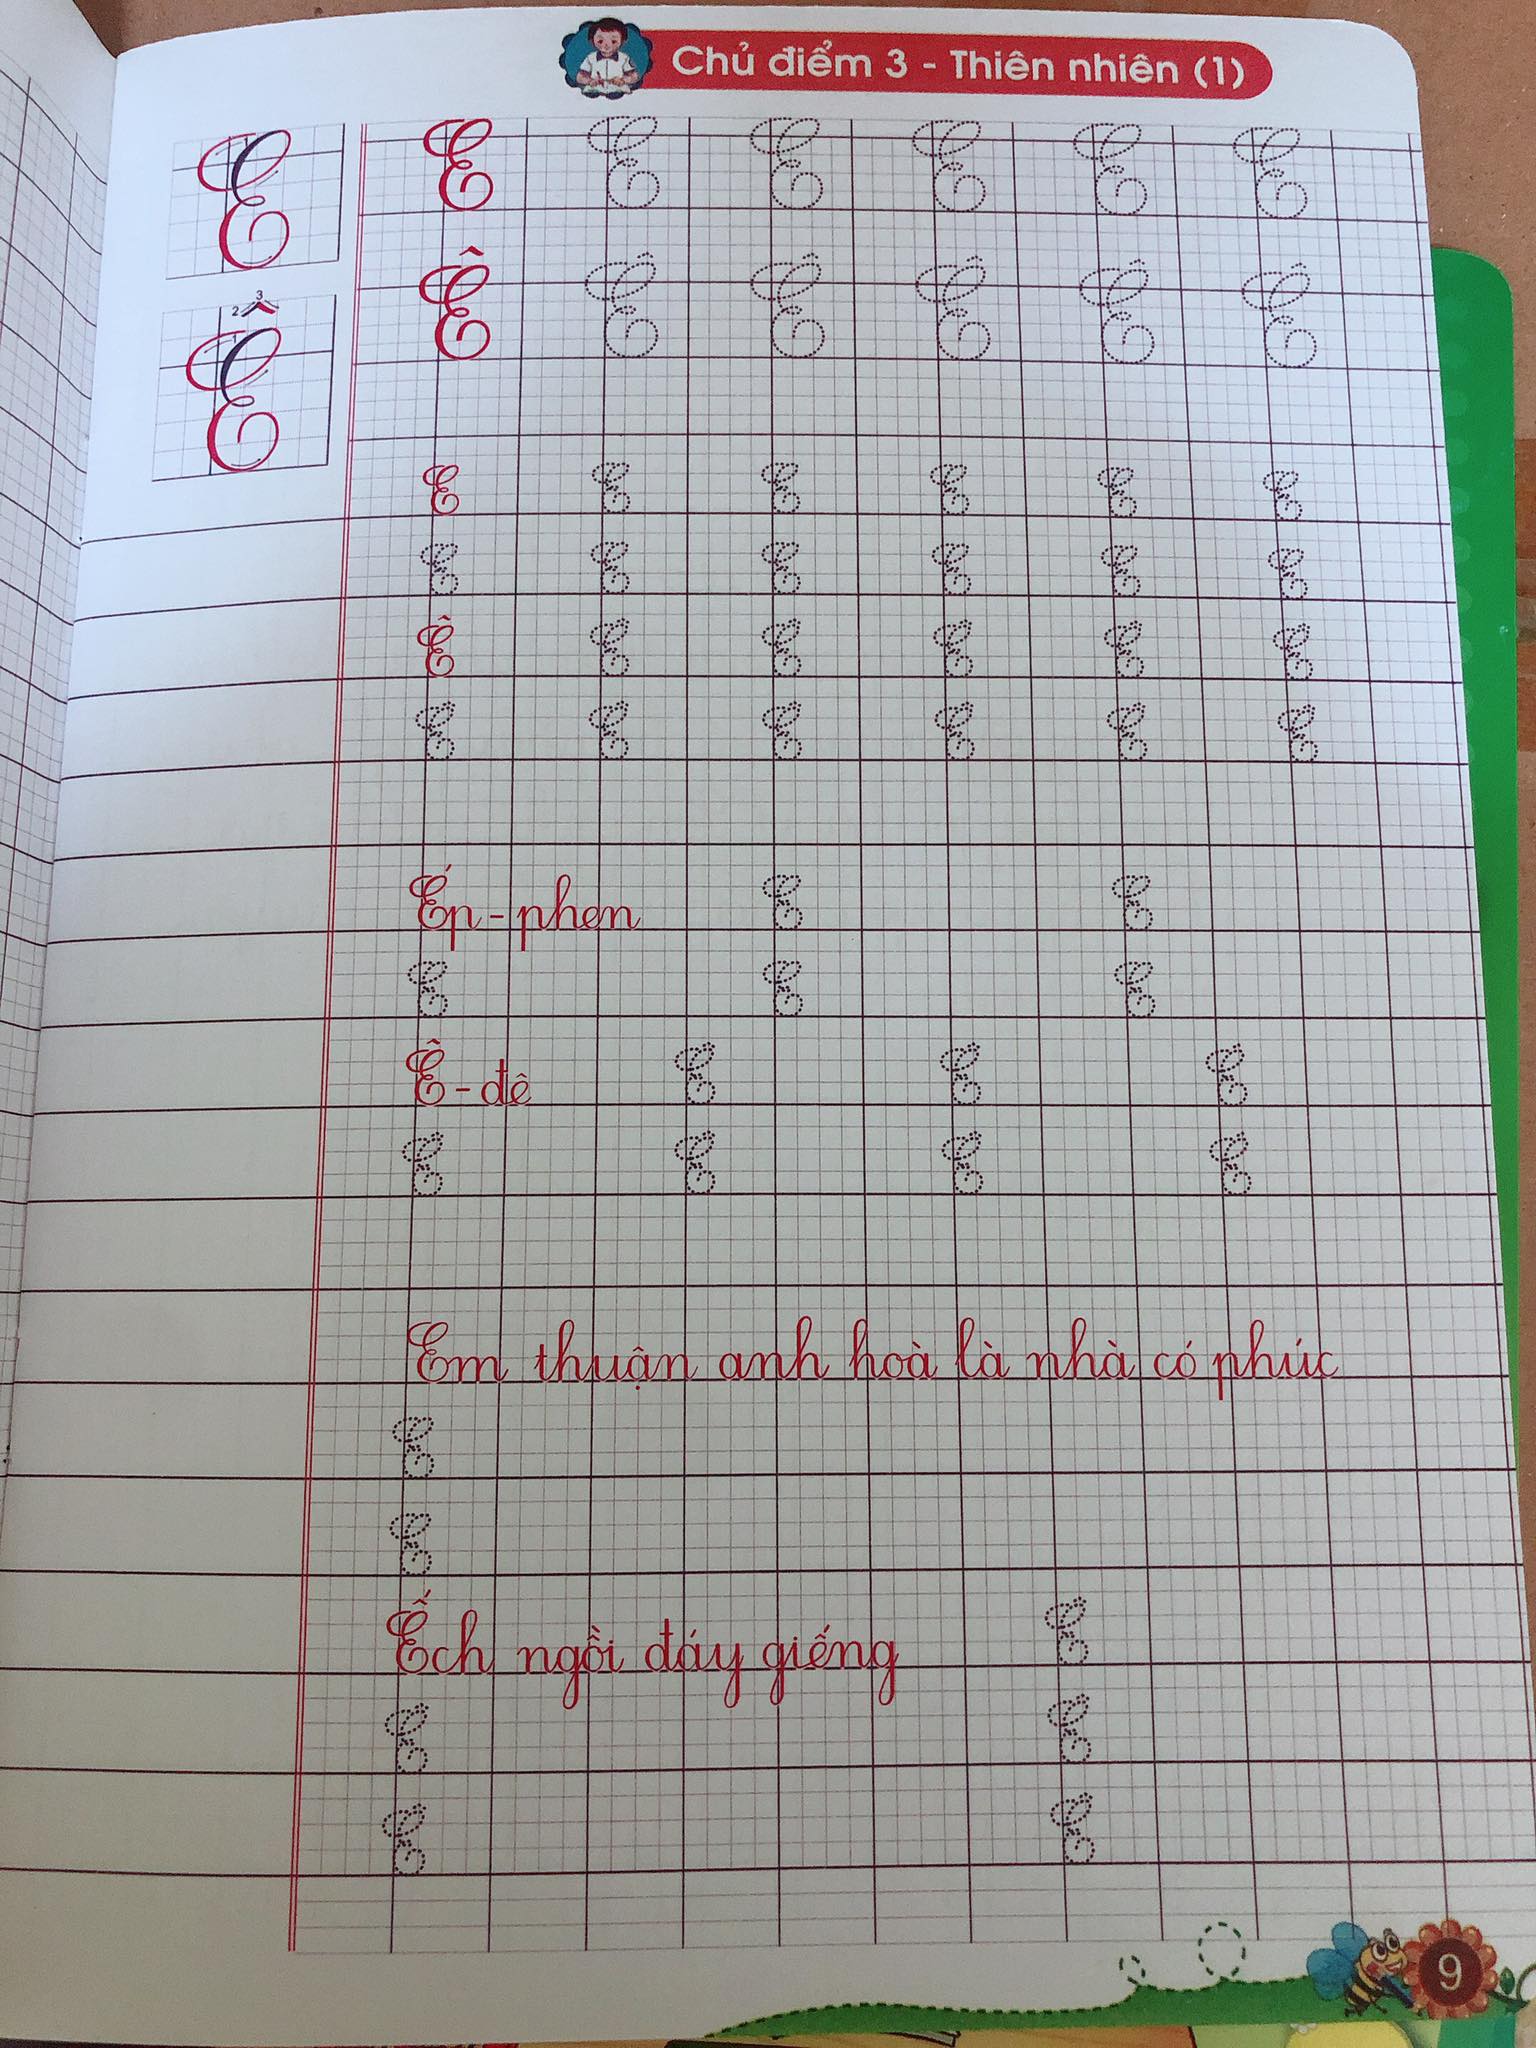 Chủ điểm 3 - Thiên nhiên (1)
E E E E E E E
2 3
Ê Ê Ê Ê Ê Ê Ê
E E E E E E
E E E E E E
Ê Ê Ê Ê Ê Ê
Ê Ê Ê Ê Ê Ê
Ép-phen E E
E E E
Ê-đê Ê Ê Ê
Ê Ê Ê Ê
Em thuận anh hoà là nhà có phúc
E
E
Ếch ngồi đáy giếng Ê
Ê Ê
Ê Ê
9